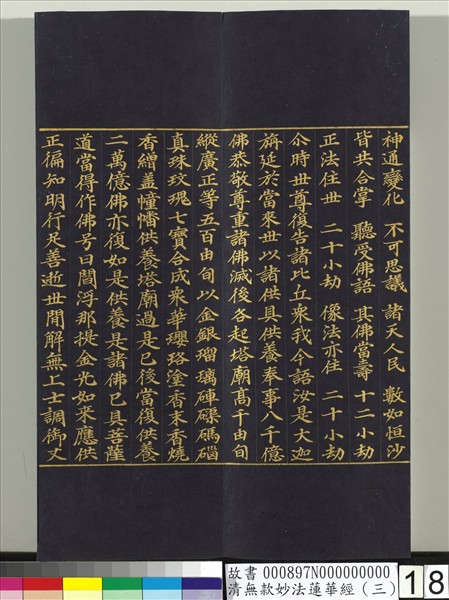 神通變化　不可思議　諸天人民　數如恒沙
皆共合掌　聽受佛語　其佛當壽　十二小劫
正法住丗　二十小劫　像法亦住　二十小劫
尒時丗尊復告諸比丘衆我今語汝是大迦
旃延於當來丗以諸供具供養奉事八千億
佛恭敬尊重諸佛滅後各起塔廟髙千由旬
縱廣正等五百由旬以金銀瑠璃硨磲碼碯
真珠玫瑰七寶合成衆華瓔珞塗香末香燒
香繒盖幢幡供養塔廟過是已後當復供養
二萬億佛亦復如是供養是諸佛已具菩薩
道當得作佛号曰閻浮那提金光如來應供
正徧知明行足善逝丗間解無上士調御丈
故書 000897N000000000
清無款妙法蓮華經（三）
18